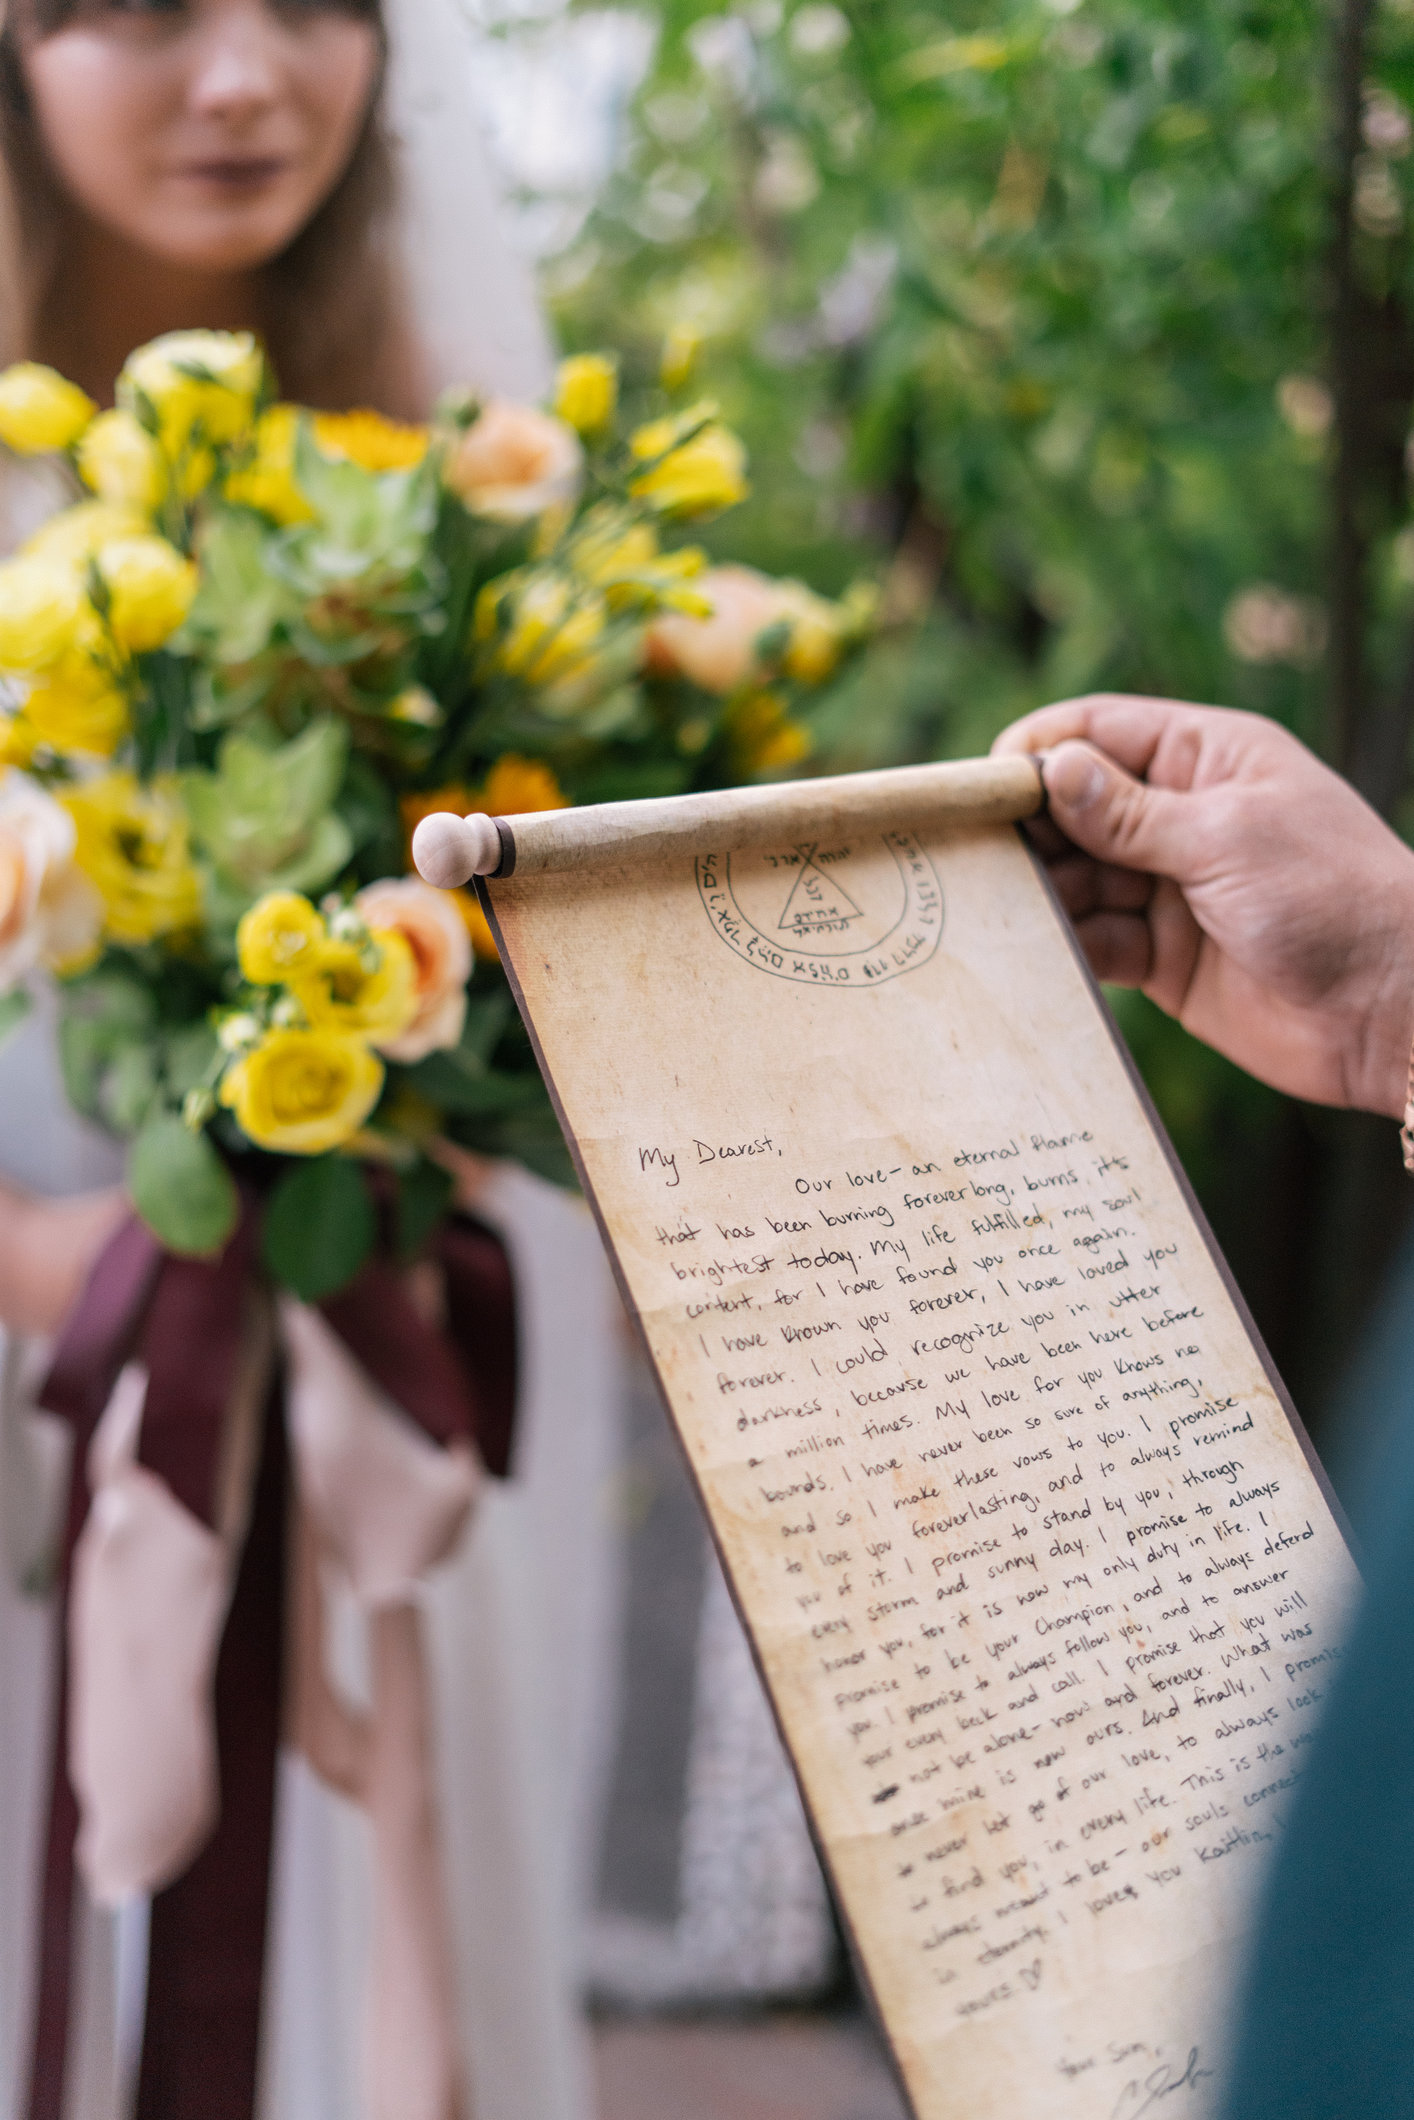 My Dearest,
Our love - an eternal flame
that has been burning foreverlong, burns it's
brightest today. My life fulfilled, my soul
content, for I have found you once again.
I have known you forever, I have loved you
forever. I could recognize you in utter
darkness, because we have been here before
a million times. My love for you knows no
bounds. I have never been so sure of anything,
and so I make these vows to you. I promise
to love you foreverlasting, and to always remind
you of it. I promise to stand by you, through
every storm and sunny day. I promise to always
honor you, for it is now my only duty in life. I
promise to be your Champion, and to always defend
you. I promise to always follow you, and to answer
your every beck and call. I promise that you will
not be alone - now and forever. What was
once mine is now ours. And finally, I promise
to never let go of our love, to always look
to find you, in every life. This is the
always meant to be - our souls
in eternity. I love you Kaitlin,
yours ♡